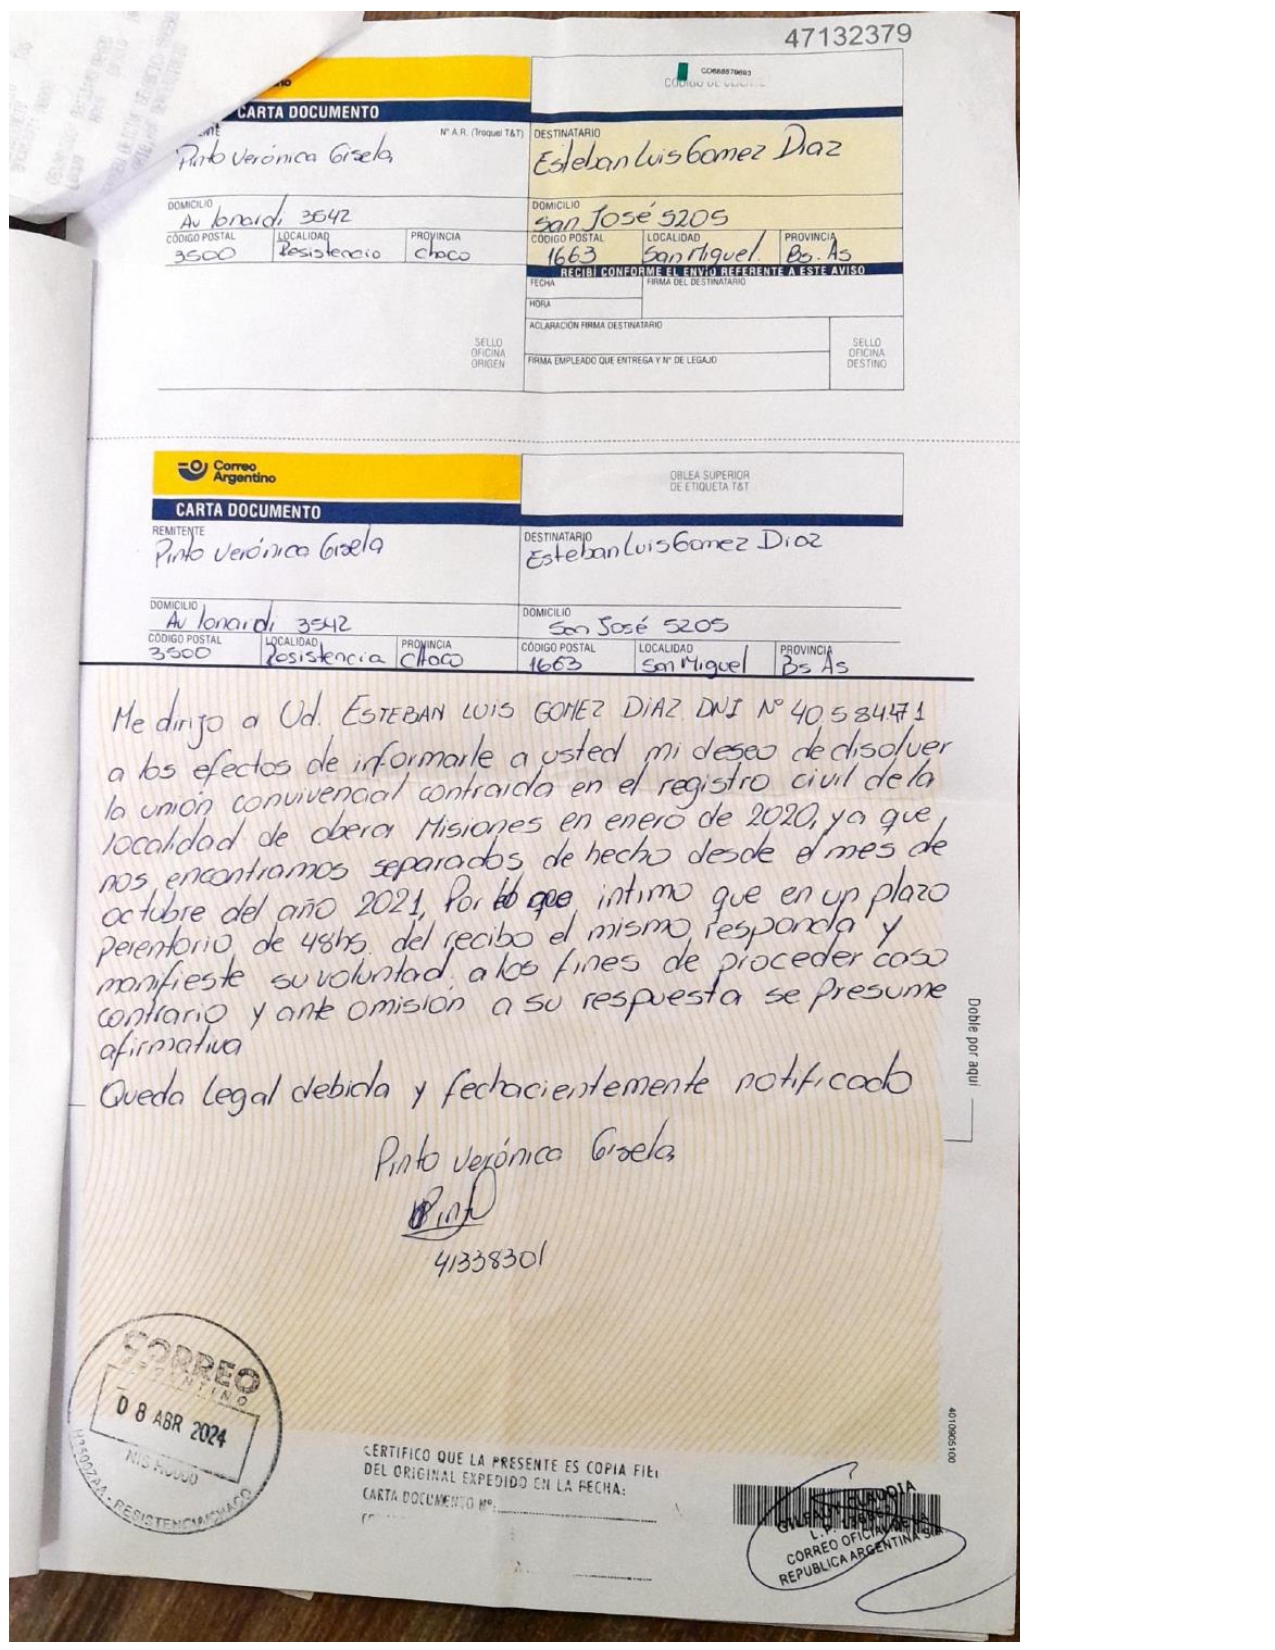 47132379
CD888579693
CARTA DOCUMENTO
Nº A.R. (Troquel T&T)
Pinto Verónica Gisela
DESTINATARIO
Esteban Luis Gomez Diaz
DOMICILIO
Av Lonardi 3542
DOMICILIO
San José 5205
CÓDIGO POSTAL
LOCALIDAD
PROVINCIA
3500
Resistencia
Chaco
CÓDIGO POSTAL
LOCALIDAD
PROVINCIA
1663
San Miguel.
Bs. As
RECIBÍ CONFORME EL ENVÍO REFERENTE A ESTE AVISO
FECHA
FIRMA DEL DESTINATARIO
HORA
ACLARACIÓN FIRMA DESTINATARIO
FIRMA EMPLEADO QUE ENTREGA Y Nº DE LEGAJO
SELLO
OFICINA
ORIGEN
SELLO
OFICINA
DESTINO
Correo
Argentino
OBLEA SUPERIOR
DE ETIQUETA T&T
CARTA DOCUMENTO
REMITENTE
Pinto Verónica Gisela
DESTINATARIO
Esteban Luis Gomez Diaz
DOMICILIO
Av Lonardi 3542
DOMICILIO
San José 5205
CÓDIGO POSTAL
LOCALIDAD
PROVINCIA
3500
Resistencia
Chaco
CÓDIGO POSTAL
LOCALIDAD
PROVINCIA
1663
San Miguel
Bs As
Me dirijo a Ud. ESTEBAN LUIS GOMEZ DIAZ DNI Nº 40.584.471
a los efectos de informarle a usted mi deseo de disolver
la unión convivencial contraida en el registro civil de la
localidad de obera Misiones en enero de 2020, ya que
nos encontramos separados de hecho desde el mes de
octubre del año 2021, Por lo que intimo que en un plazo
perentorio de 48hs. del recibo el mismo responda y
manifieste su voluntad a los fines de proceder caso
contrario y ante omisión a su respuesta se presume
afirmativa
Queda Legal debida y fechacientemente notificado
Pinto Verónica Gisela
Pinto
41338301
Doble por aquí
4010905100
CORREO
ARGENTINO
08 ABR 2024
RESISTENCIA
CERTIFICO QUE LA PRESENTE ES COPIA FIEL
DEL ORIGINAL EXPEDIDO EN LA FECHA:
CARTA DOCUMENTO Nº:
CLAUDIA
CORREO OFICIAL DE LA
REPUBLICA ARGENTINA S.A.